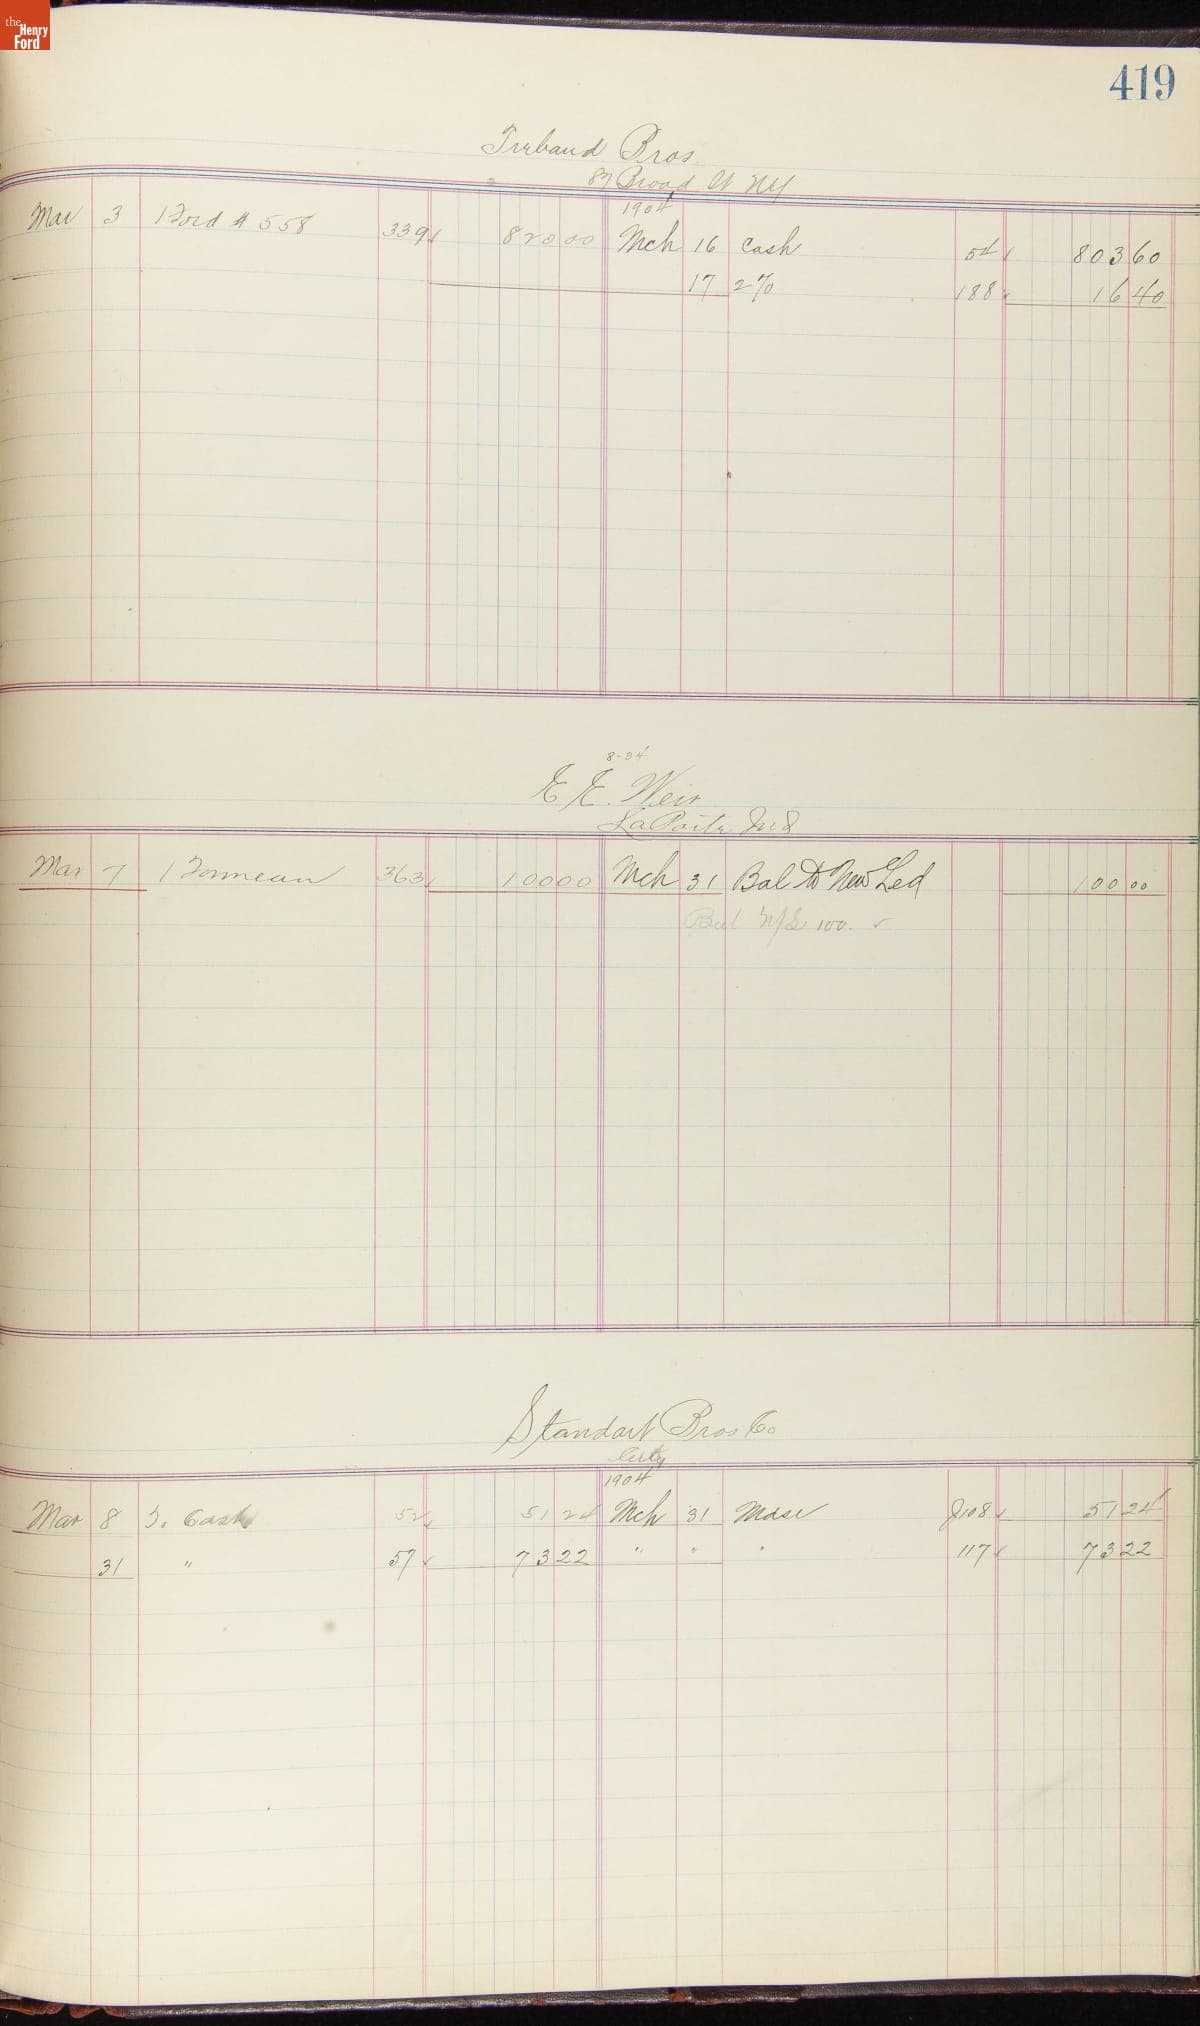 the Henry Ford
419
Bros
87 Broad St NY
1904
Mar 3 1 Ford # 558 339 820 00 Mch 16 Cash 54 803 60
17 2% 188 16 40
8-34
E. E. Weir
La Porte Ind
Mar 7 1 Tonneau 363 100 00 Mch 31 Bal to New Led 100 00
100.
Standart Bros Co
City
1904
Mar 8 To Cash 52 51 24 Mch 31 Mdse J108 51 24
31 " 57 73 22 " " " 117 73 22